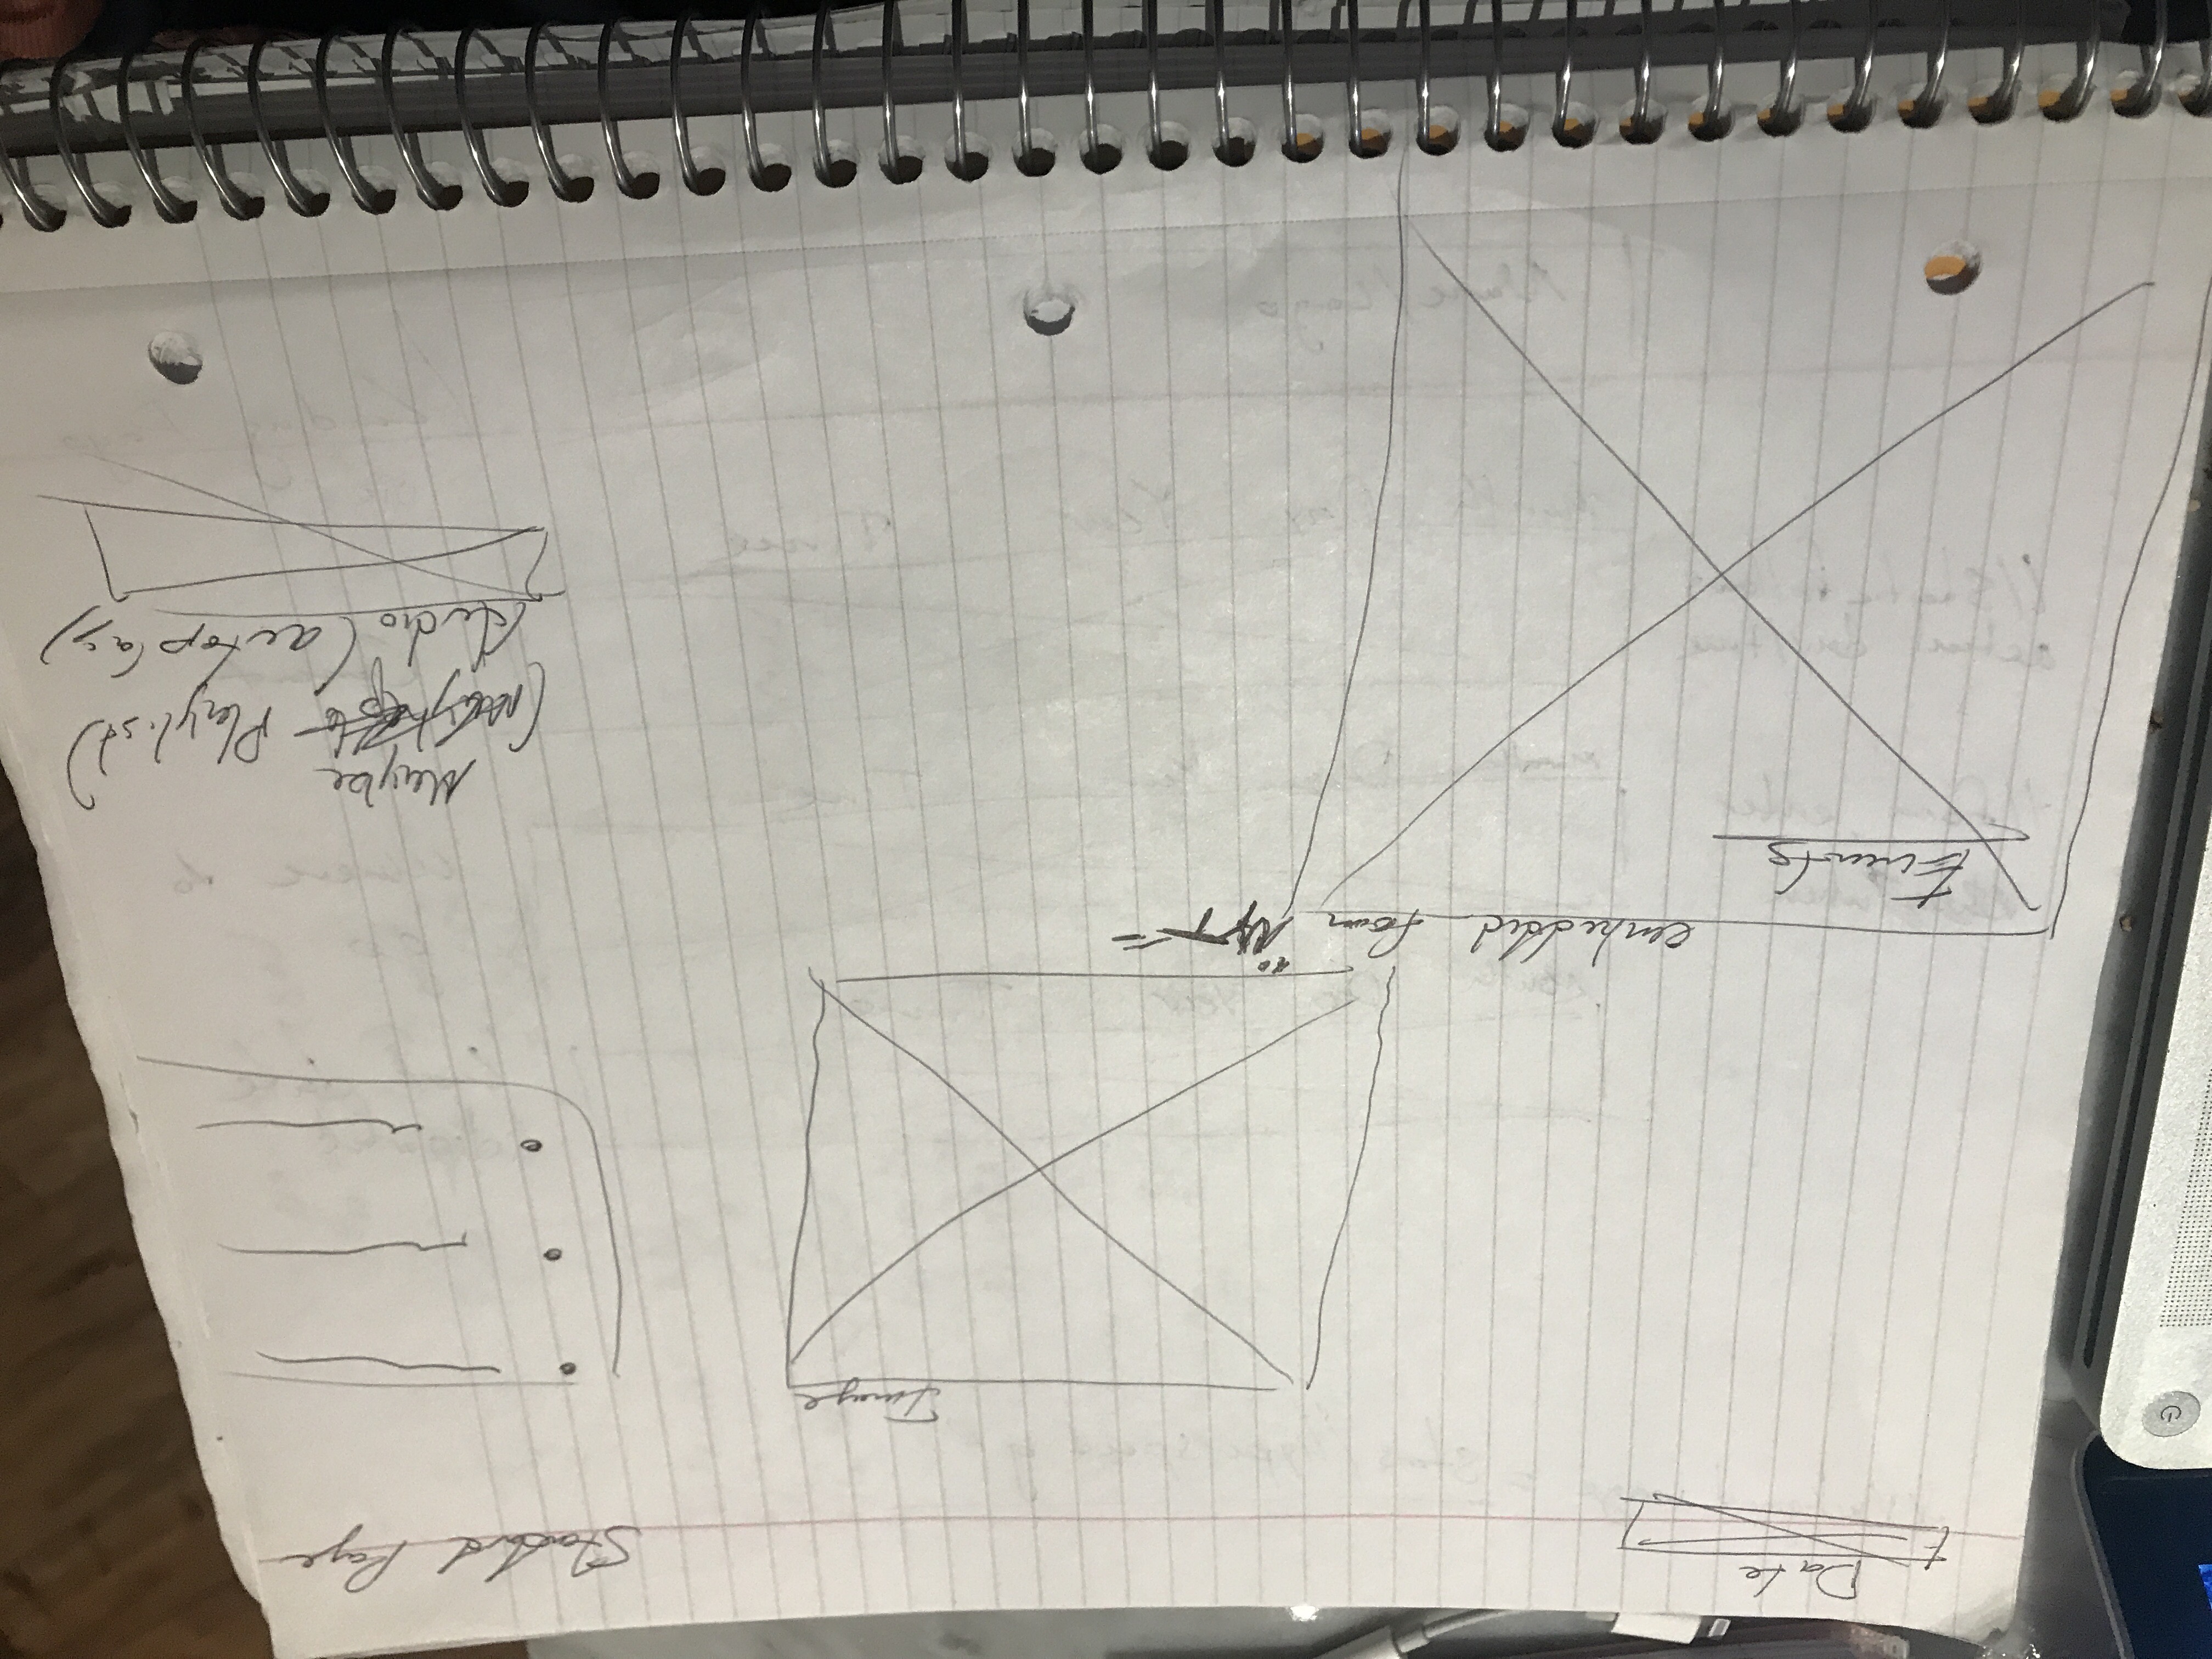 Date
Standard Page
Image
embedded from NYT
Events
Maybe
(Playlist)
Audio (autoplay)